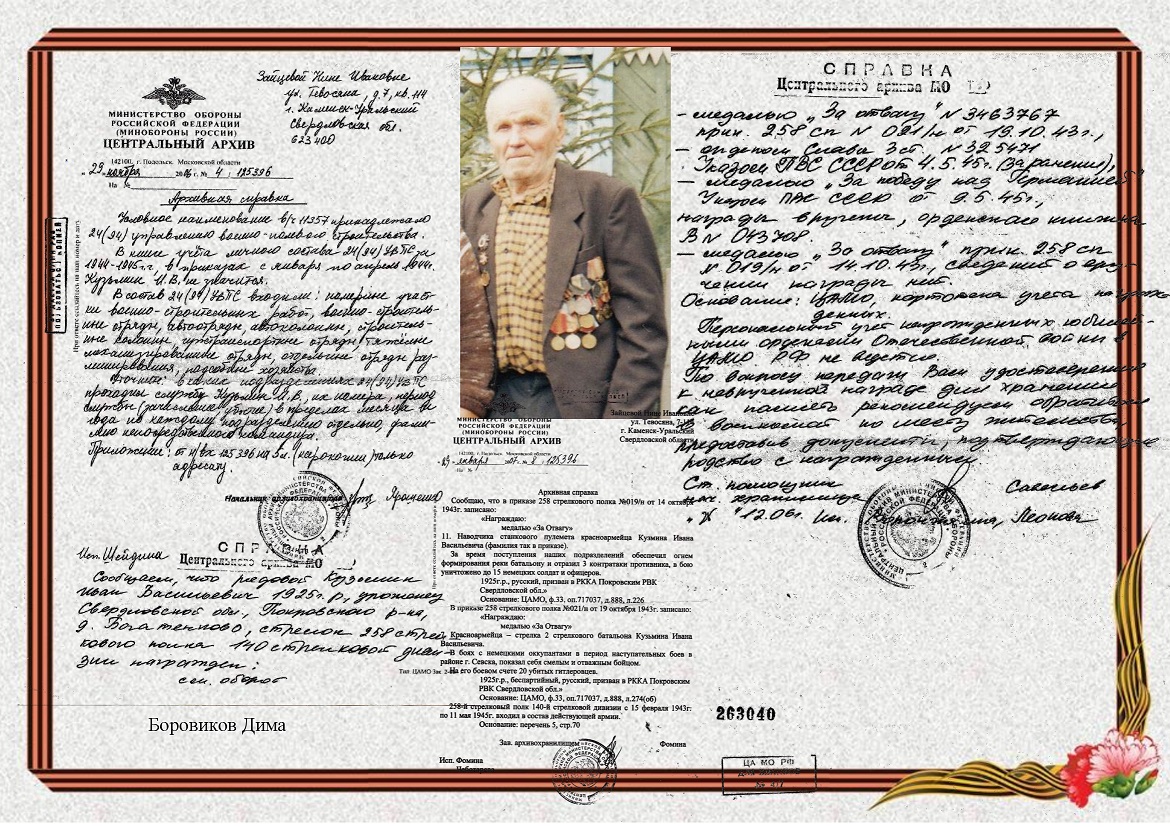 Зайцевой Нине Ивановне
ул. Тевосяна, д.7, кв.114
г. Каменск-Уральский
Свердловская обл.
623400
МИНИСТЕРСТВО ОБОРОНЫ
РОССИЙСКОЙ ФЕДЕРАЦИИ
(МИНОБОРОНЫ РОССИИ)
ЦЕНТРАЛЬНЫЙ АРХИВ
142100, г. Подольск, Московской области
"29" ноября 2006 г. № 4/125396
На №
Архивная справка
Условное наименование в/ч 11357 принадлежало
24(94) управлению военно-полевого строительства.
В книге учета личного состава 24(94) УВПС за
1944-1945 г.г., в приказах с января по апрель 1944г.
Кузьмин И.В. не значится.
В состав 24(94) УВПС входили: номерные участ-
ки военно-строительных работ, военно-строитель-
ные отряды, автоотряды, автоколонны, строитель-
ные колонны, гужтранспортные отряды,
отряды, отдельные отряды раз-
минирования, подсобные хозяйства.
Уточните: в каких подразделениях 24(94) УВПС
проходил службу Кузьмин И.В., их номера, период
службы (зачисление, убытие) в пределах месяца и
года по каждому подразделению отдельно, фами-
лию непосредственного командира.
Приложение: от н/вх 125396 на 5 л. (нарочным) только
адресату.
Начальник архивохранилища Ярощенко
Исп. Шейдина
СПРАВКА
Центрального архива МО
Сообщаем, что рядовой Кузьмин
Иван Васильевич 1925 г.р., уроженец
Свердловской обл., Покровского р-на,
д. Богатенково, стрелок 258 стрел-
кового полка 140 стрелковой диви-
зии награжден:
см. оборот
Боровиков Дима
Зайцевой Нине Ивановне
ул. Тевосяна, 7-114
г. Каменск-Уральский
Свердловской области
МИНИСТЕРСТВО ОБОРОНЫ
РОССИЙСКОЙ ФЕДЕРАЦИИ
(МИНОБОРОНЫ РОССИИ)
ЦЕНТРАЛЬНЫЙ АРХИВ
142100, г. Подольск, Московской области
января 2007 г. № 8/125396
Архивная справка
Сообщаю, что в приказе 258 стрелкового полка №019/н от 14 октября
1943г. записано:
«Награждаю:
медалью «За Отвагу»
11. Наводчика станкового пулемета красноармейца Кузмина Ивана
Васильевича (фамилия так в приказе).
За время поступления наших подразделений обеспечил огнем
формирования реки батальону и отразил 3 контратаки противника, в бою
уничтожено до 15 немецких солдат и офицеров.
1925г.р., русский, призван в РККА Покровским РВК
Свердловской обл.»
Основание: ЦАМО, ф.33, оп.717037, д.888, л.226
В приказе 258 стрелкового полка №021/н от 19 октября 1943г. записано:
«Награждаю:
медалью «За Отвагу»
Красноармейца – стрелка 2 стрелкового батальона Кузьмина Ивана
Васильевича.
В боях с немецкими оккупантами в период наступательных боев в
районе г. Севска, показал себя смелым и отважным бойцом.
На его боевом счете 20 убитых гитлеровцев.
1925г.р., беспартийный, русский, призван в РККА Покровским
РВК Свердловской обл.»
Основание: ЦАМО, ф.33, оп.717037, д.888, л.274(об)
258-й стрелковый полк 140-й стрелковой дивизии с 15 февраля 1943г.
по 11 мая 1945г. входил в состав действующей армии.
Основание: перечень 5, стр.70
Зав. архивохранилищем Фомина
Исп. Фомина
СПРАВКА
Центрального архива МО
– медалью „За отвагу" N 3463767
прик. 258 сп N 021/н от 19.10.43г.,
– орденом Слава 3 ст. N 325471
Указом ПВС СССР от 4.5.45г. (за ранения),
– медалью „За победу над Германией"
Указом ПВС СССР от 9.5.45г.,
награды вручены, орденская книжка
В N 043708
– медалью „За отвагу" прик. 258 сп
N 019/н от 14.10.43г., сведений о вру-
чении награды нет.
Основание: ЦАМО, картотека учета награж-
денных.
Персональный учет награжденных юбилей-
ными орденами Отечественной войны в
ЦАМО РФ не ведется.
По вопросу передачи Вам удостоверения
к неврученной награде для хранения
как память рекомендуем обратиться
в военкомат по месту жительства,
предоставив документы, подтверждающие
родство с награжденным.
Ст. помощник
нач. хранилища Савельев
12.06г. Леонова
263040
ЦА МО РФ